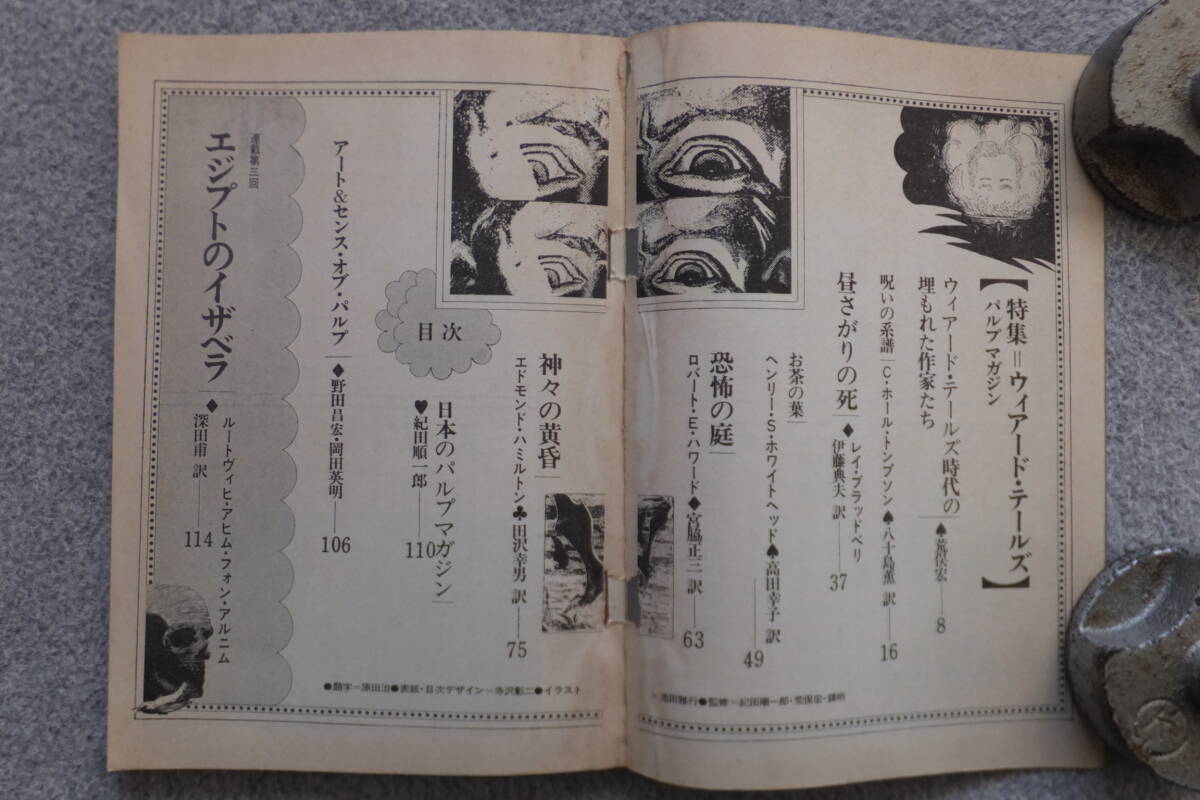 【特集=ウィアード・テールズ】
パルプマガジン
ウィアード・テールズ時代の
埋もれた作家たち
♠荒俣宏——8
呪いの系譜
C・ホール・トンプソン♠八十島薫 訳——16
昼さがりの死
◆レイ・ブラッドベリ
伊藤典夫 訳——37
お茶の葉
ヘンリー・S・ホワイトヘッド♠高田幸子 訳——49
恐怖の庭
ロバート・E・ハワード◆宮脇正三 訳——63
神々の黄昏
エドモンド・ハミルトン♣田沢幸男 訳——75
目次
日本のパルプマガジン
♥紀田順一郎——110
アート&センス・オブ・パルプ
◆野田昌宏・岡田英明——106
連載第三回
エジプトのイザベラ
◆ルートヴィヒ・アヒム・フォン・アルニム
深田甫 訳——114
●題字=原田治●表紙・目次デザイン=寺沢彰二●イラスト
●監修=紀田順一郎・荒俣宏・鏡明